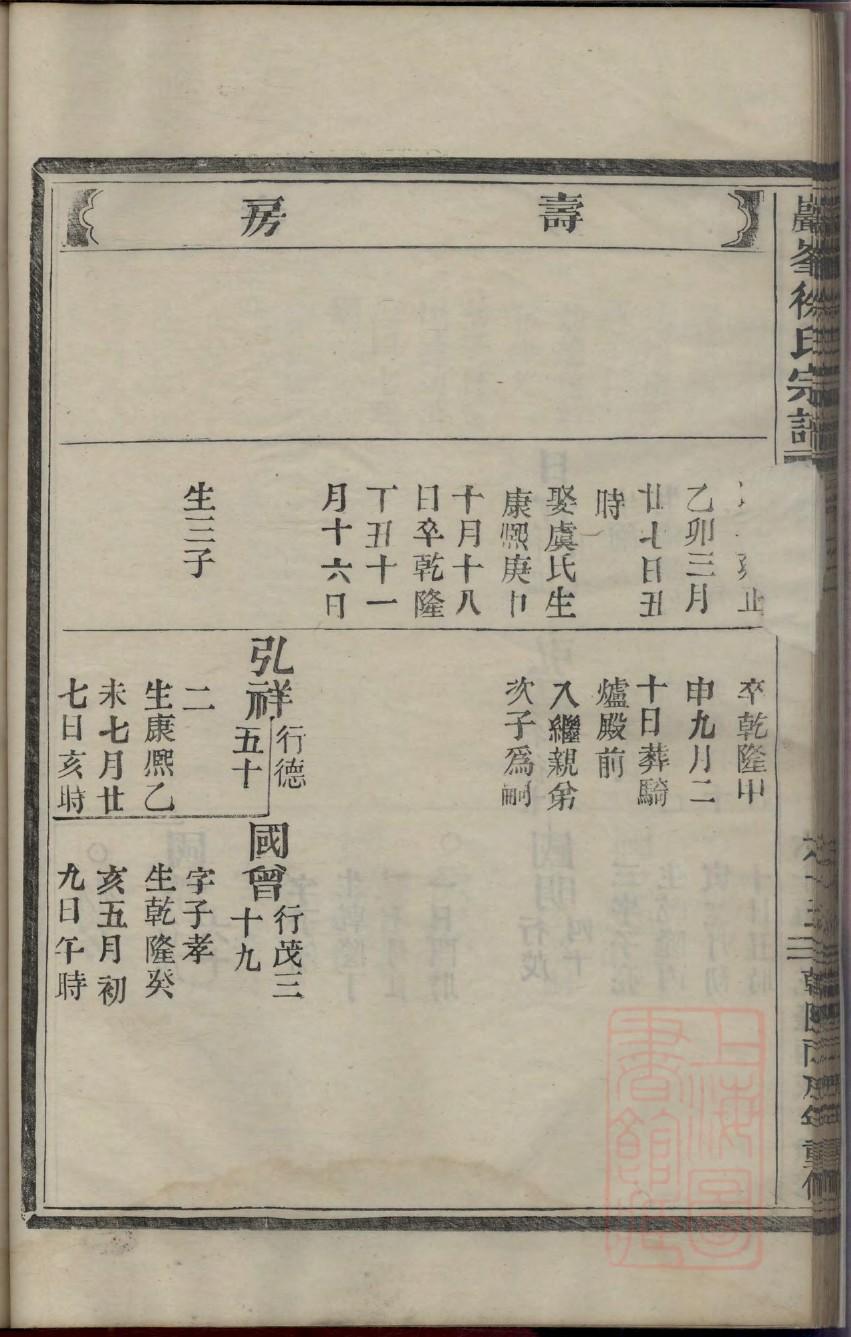 巖峯徐氏宗譜
乾隆丙辰年重修
壽房
乙卯三月
廿七日丑
時
娶虞氏生
康熙庚
十月十八
日卒乾隆
丁丑十一
月十六日
生三子
卒乾隆甲
申九月二
十日葬騎
爐殿前
入繼親弟
次子爲嗣
弘祥
行德
五十
二
生康熙乙
未七月廿
七日亥時
國曾
行茂三
十九
字子孝
生乾隆癸
亥五月初
九日午時
上海圖
書館藏